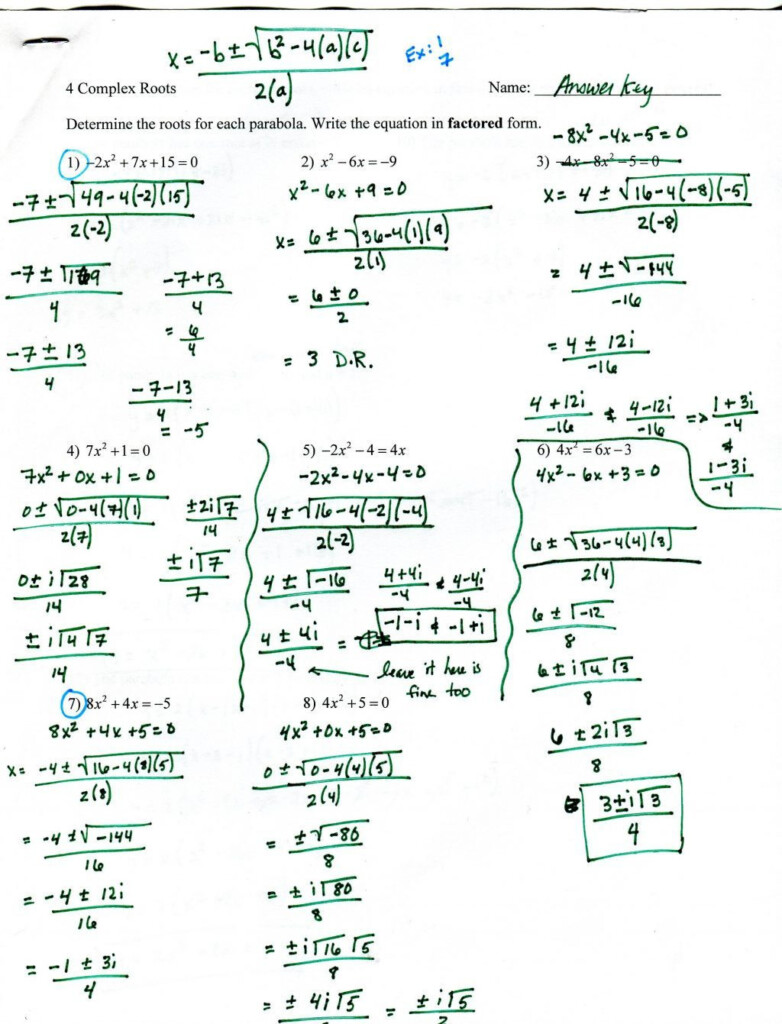 x = -b ± √b² - 4(a)(c) / 2(a)
Ex: 1, 7
4 Complex Roots
Name: Answer Key
Determine the roots for each parabola. Write the equation in factored form.
1) -2x² + 7x + 15 = 0
-7 ± √49 - 4(-2)(15) / 2(-2)
-7 ± √169 / 4
-7 + 13 / 4
= 6/4
-7 ± 13 / 4
-7 - 13 / 4
= -5
2) x² - 6x = -9
x² - 6x + 9 = 0
x = 6 ± √36 - 4(1)(9) / 2(1)
= 6 ± 0 / 2
= 3 D.R.
-8x² - 4x - 5 = 0
3) -4x - 8x² - 5 = 0
x = 4 ± √16 - 4(-8)(-5) / 2(-8)
= 4 ± √-144 / -16
= 4 ± 12i / -16
4 + 12i / -16 & 4 - 12i / -16 => 1 + 3i / -4
&
1 - 3i / -4
4) 7x² + 1 = 0
7x² + 0x + 1 = 0
0 ± √0 - 4(7)(1) / 2(7)
±2i√7 / 14
± i√7 / 7
0 ± i√28 / 14
± i√4 √7 / 14
5) -2x² - 4 = 4x
-2x² - 4x - 4 = 0
4 ± √16 - 4(-2)(-4) / 2(-2)
4 ± √-16 / -4
4 + 4i / -4 & 4 - 4i / -4
4 ± 4i / -4 = -1 - i & -1 + i
leave it here is
fine too
6) 4x² = 6x - 3
4x² - 6x + 3 = 0
6 ± √36 - 4(4)(3) / 2(4)
6 ± √-12 / 8
6 ± i√4 √3 / 8
6 ± 2i√3 / 8
3 ± i√3 / 4
7) 8x² + 4x = -5
8x² + 4x + 5 = 0
x = -4 ± √16 - 4(8)(5) / 2(8)
= -4 ± √-144 / 16
= -4 ± 12i / 16
= -1 ± 3i / 4
8) 4x² + 5 = 0
4x² + 0x + 5 = 0
0 ± √0 - 4(4)(5) / 2(4)
= ± √-80 / 8
= ± i√80 / 8
= ± i√16 √5 / 8
= ± 4i√5 = ± i√5 / 2